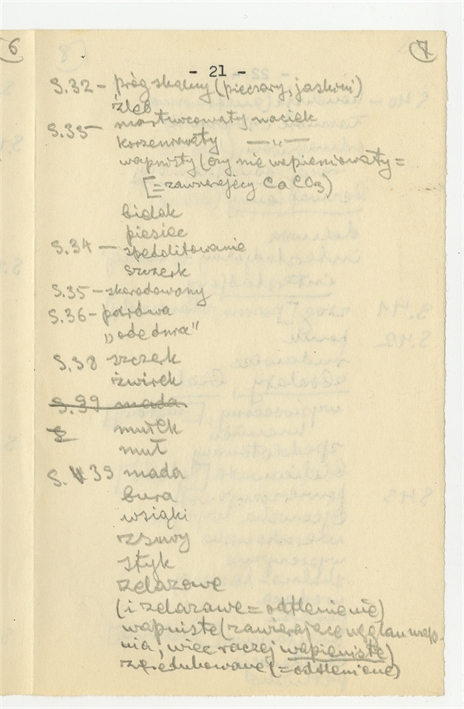 6
7
- 21 -
S.32 - próg skalny (pieczary, jaskini)
żleb
S.33 - nasturcowaty naciek
korzeniowaty —"—
wapnisty (czy nie wapieniowaty =
[= zawierający CaCO3)
bidak
piesiec
S.34 - spodolitowanie
szczerk
S.35 - zerodowany
S.36 -
S.38 szczerk
żwirek
S.39 mada
S
mułek
muł
S. 39 mada
bura
wsiąki
zsuwy
styk
żelazowe
(i żelazawe = odtlenienie)
wapniste (zawierające węglan wap-
nia, więc raczej wapieniste)
zredukowane (= odtlenione)